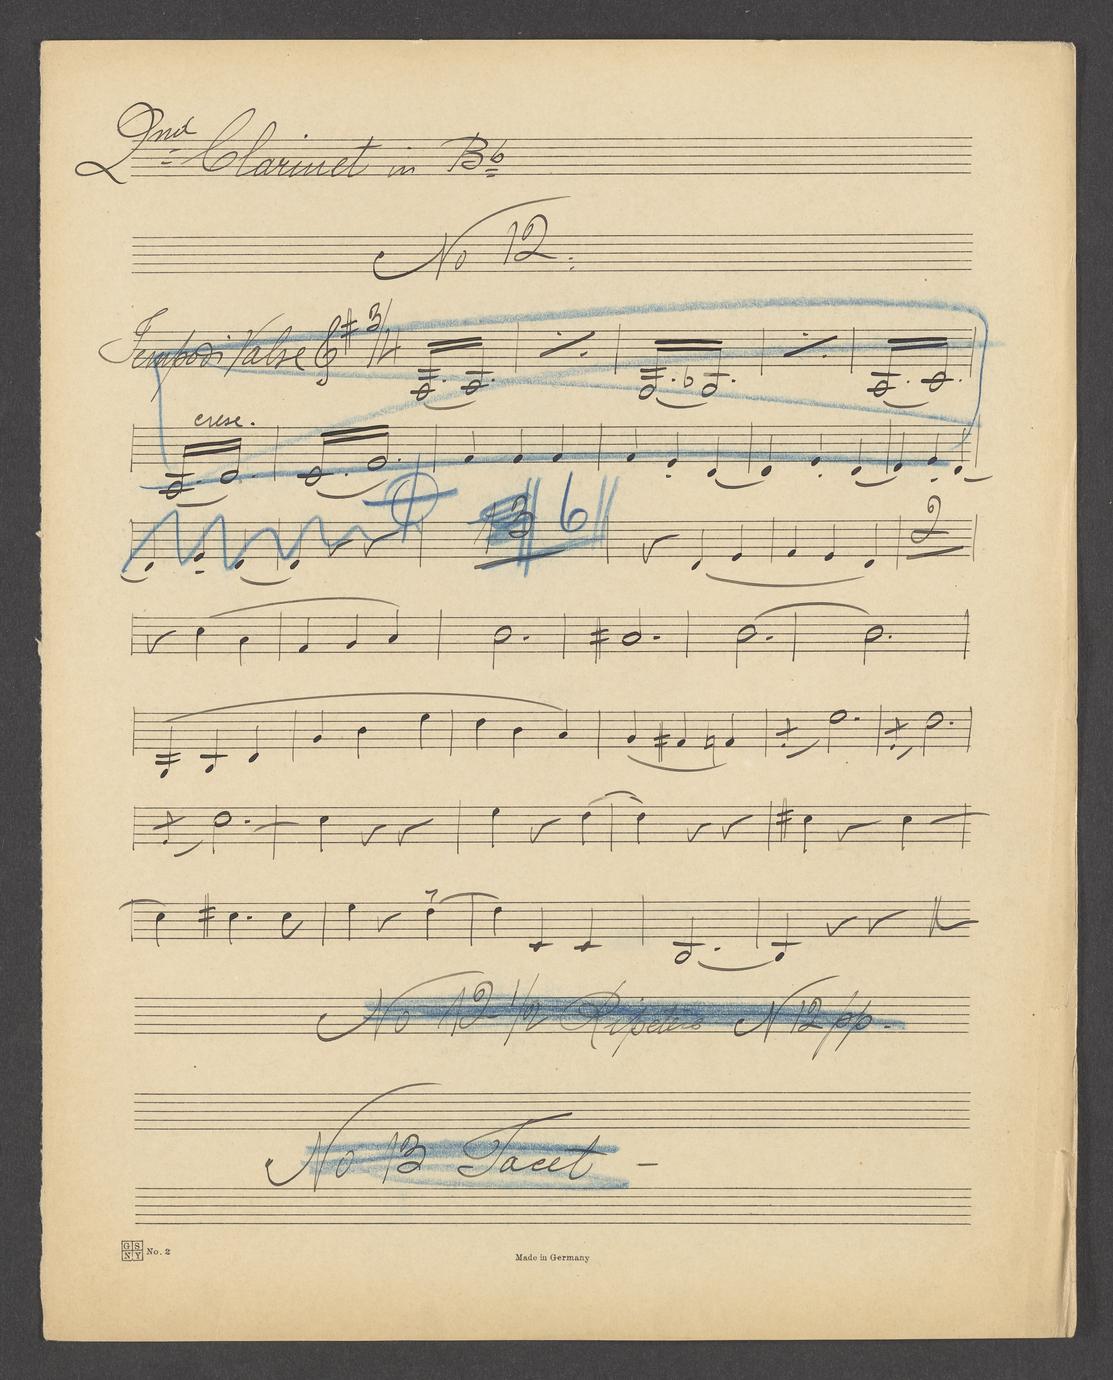 2nd Clarinet in Bb
No 12.
Tempo di Valse 3/4
cresc.
13 6
2
7
No 12 1/2 Repeters N 12 pp.
No 13 Tacet -
GS NY No. 2
Made in Germany